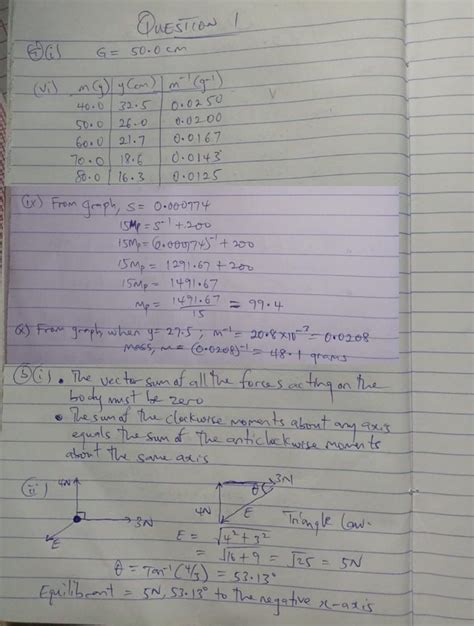 QUESTION 1
(i) G = 50.0 cm
(vi) m(g) y(cm) m⁻¹(g⁻¹)
40.0 32.5 0.0250
50.0 26.0 0.0200
60.0 21.7 0.0167
70.0 18.6 0.0143
80.0 16.3 0.0125
(ix) From graph, S = 0.000774
15Mp = S⁻¹ + 200
15Mp = (0.000774)⁻¹ + 200
15Mp = 1291.67 + 200
15Mp = 1491.67
Mp = 1491.67/15 = 99.4
(x) From graph, when y = 27.5; m⁻¹ = 20.8 x 10⁻³ = 0.0208
mass, m = (0.0208)⁻¹ = 48.1 grams
(b)(i) • The vector sum of all the forces acting on the
body must be zero
• The sum of the clockwise moments about any axis
equals the sum of the anticlockwise moments
about the same axis
(ii)
4N 3N E
4N 3N θ E Triangle Law.
E = √4² + 3²
= √16 + 9 = √25 = 5N
θ = Tan⁻¹(4/3) = 53.13°
Equilibrant = 5N, 53.13° to the negative x-axis